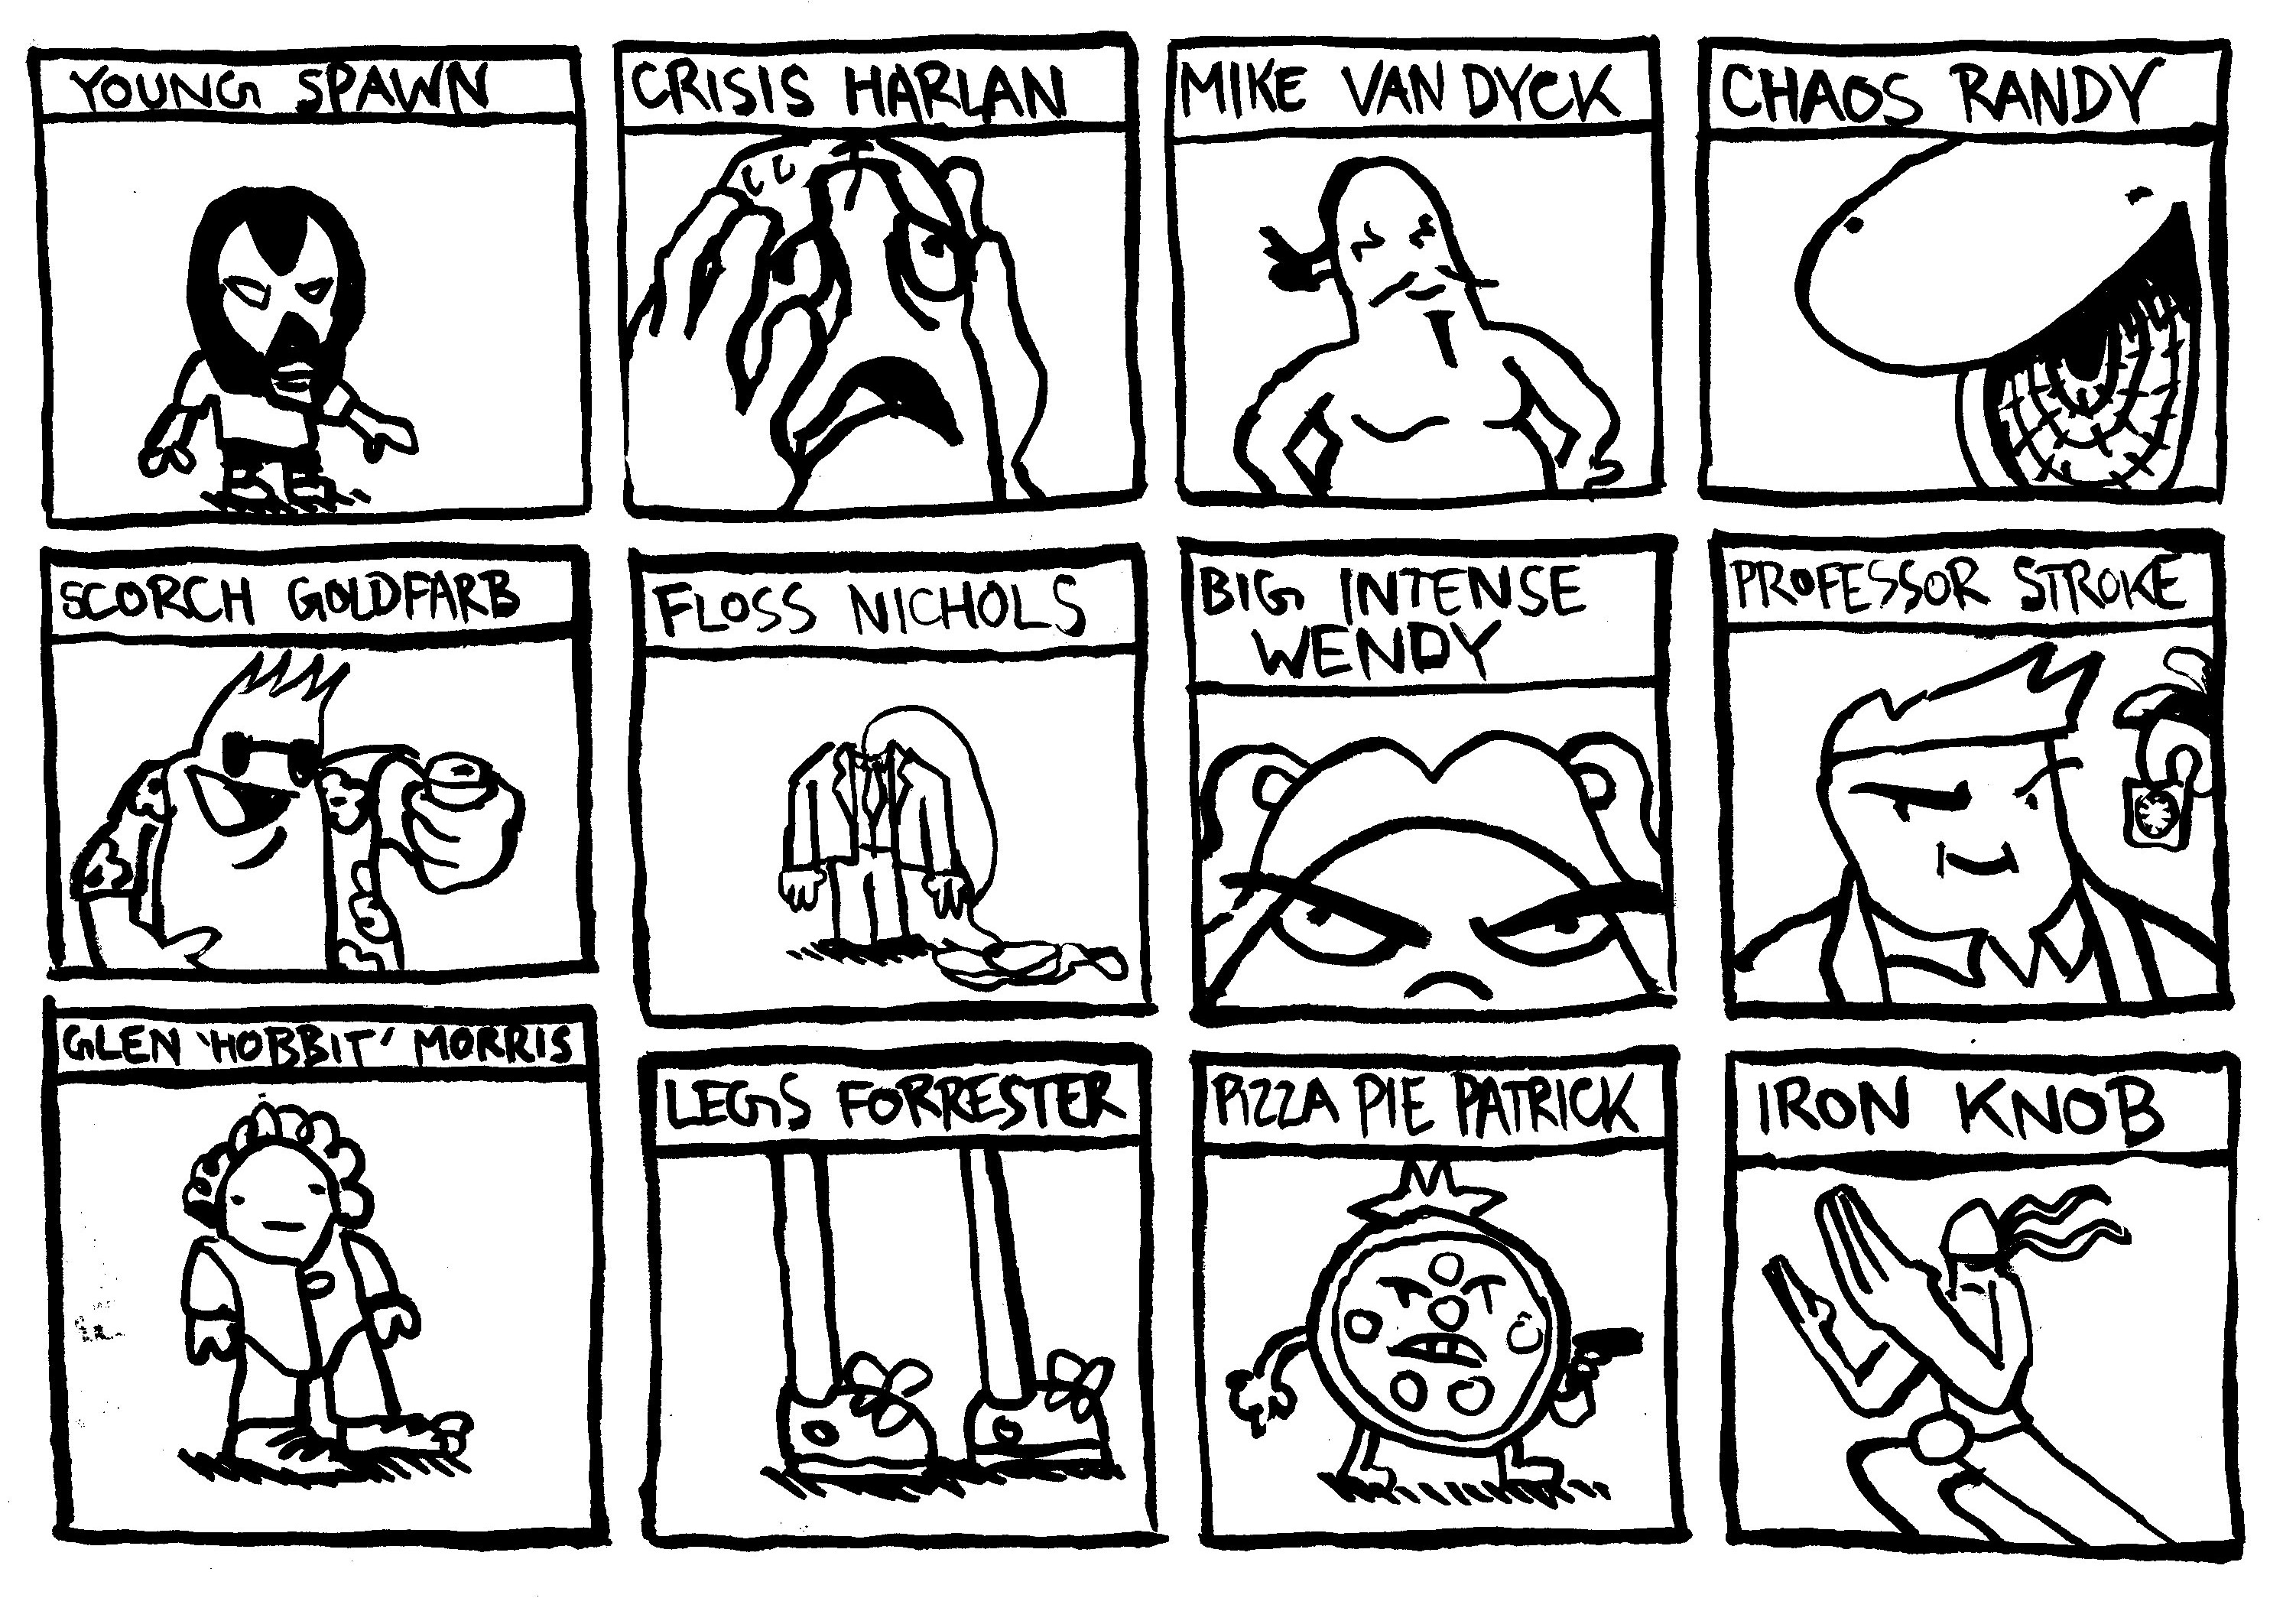 YOUNG SPAWN
CRISIS HARLAN
MIKE VAN DYCK
CHAOS RANDY
SCORCH GOLDFARB
FLOSS NICHOLS
BIG INTENSE
WENDY
PROFESSOR STROKE
GLEN 'HOBBIT' MORRIS
LEGS FORRESTER
PIZZA PIE PATRICK
IRON KNOB